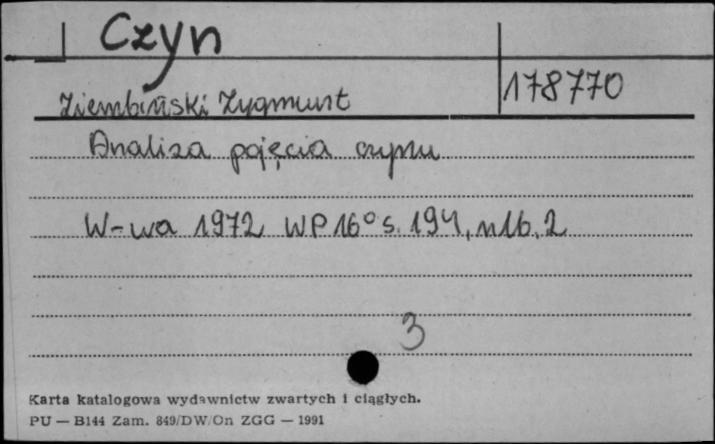 Czyn
Ziembiński Zygmunt
178770
Analiza pojęcia czynu
W-wa 1972 WP 16° s. 194, nlb. 2
3
Karta katalogowa wydawnictw zwartych i ciągłych.
PU — B144 Zam. 849/DW/On ZGG — 1991